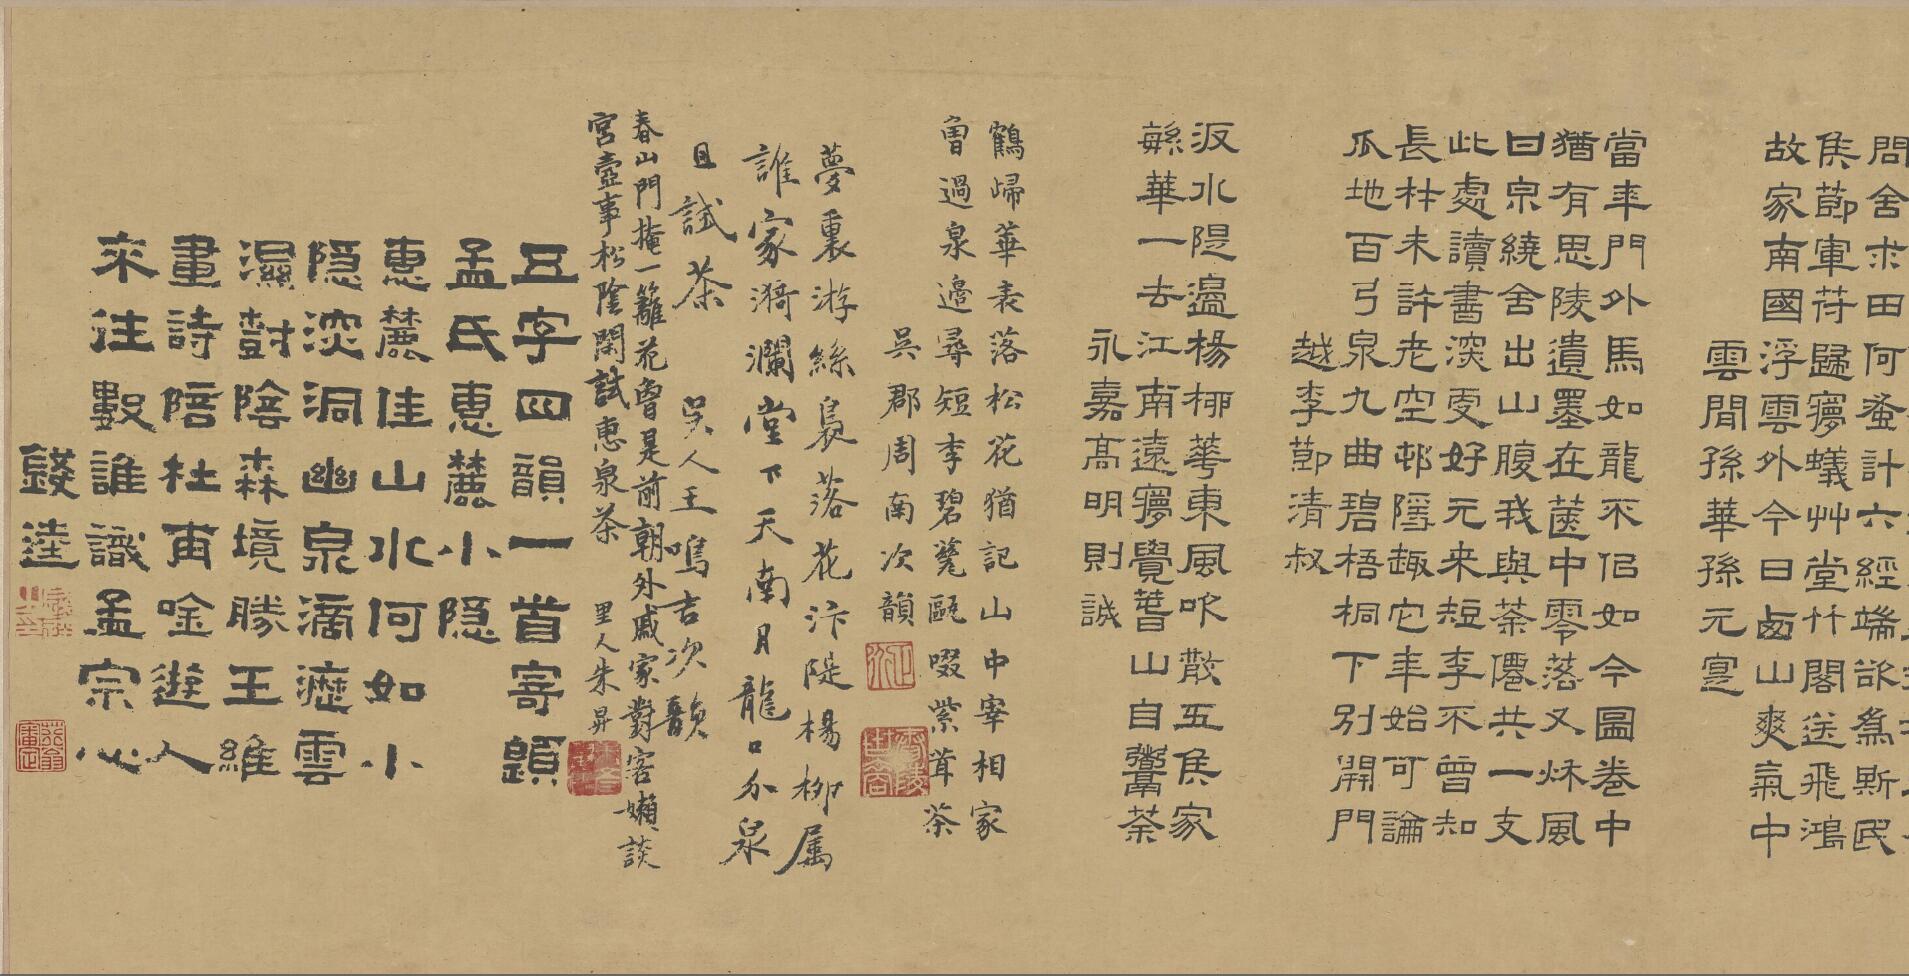 問舍求田何蚤計六經端欲為斯民
焦莭軍苻歸夢蟻艸堂竹閣送飛鴻
故家南國浮雲外今日西山爽氣中
雲間孫華孫元寔
當年門外馬如龍不侣如今圖卷中
猶有思陵遺墨在莲中零落又秌風
曰泉繞舍出山腹我與茶僊共一支
此處讀書深更好元来短李不曾知
長林未許老空邨隱趣它年始可論
瓜地百弓泉九曲碧梧桐下别開門
越李莭清叔
汳水隄邉楊栁華東風吹散五侯家
緐華一去江南遠夢覺舊山自鬻茶
永嘉高明則誠
鶴歸華表落松花猶記山中宰相家
曾過泉邉尋短李碧甆甌啜紫茸茶
吳郡周南次韻
夢裏游絲裊落花汴隄楊栁属
誰家漪瀾堂下天南月龍口分泉
且試茶
吳人王鳴吉次韻
春山門掩一籬花曾是前朝外戚家對客嬾談
宮壺事松陰閑試惠泉茶
里人朱昇
五字四韻一首寄題
孟氏惠麓小隐
惠麓佳山水何如小
隐深洞幽泉滴瀝雲
濕樹陰森境勝王維
畫詩陪杜甫唫遊人
来往數誰識孟宗心
錢逵